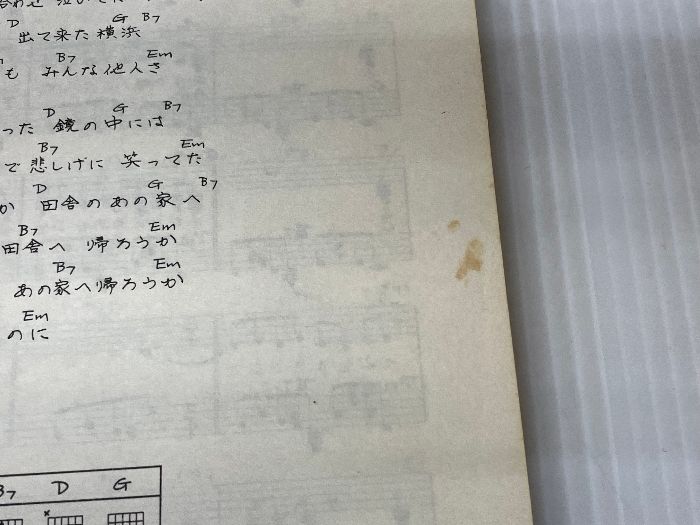 D G B7
出て来た 横浜
B7 Em
も みんな他人さ
D G B7
った 鏡の中には
B7 Em
で 悲しげに 笑ってた
D G B7
か 田舎のあの家へ
B7 Em
田舎へ 帰ろうか
B7 Em
あの家へ帰ろうか
Em
のに
B7 D G
×